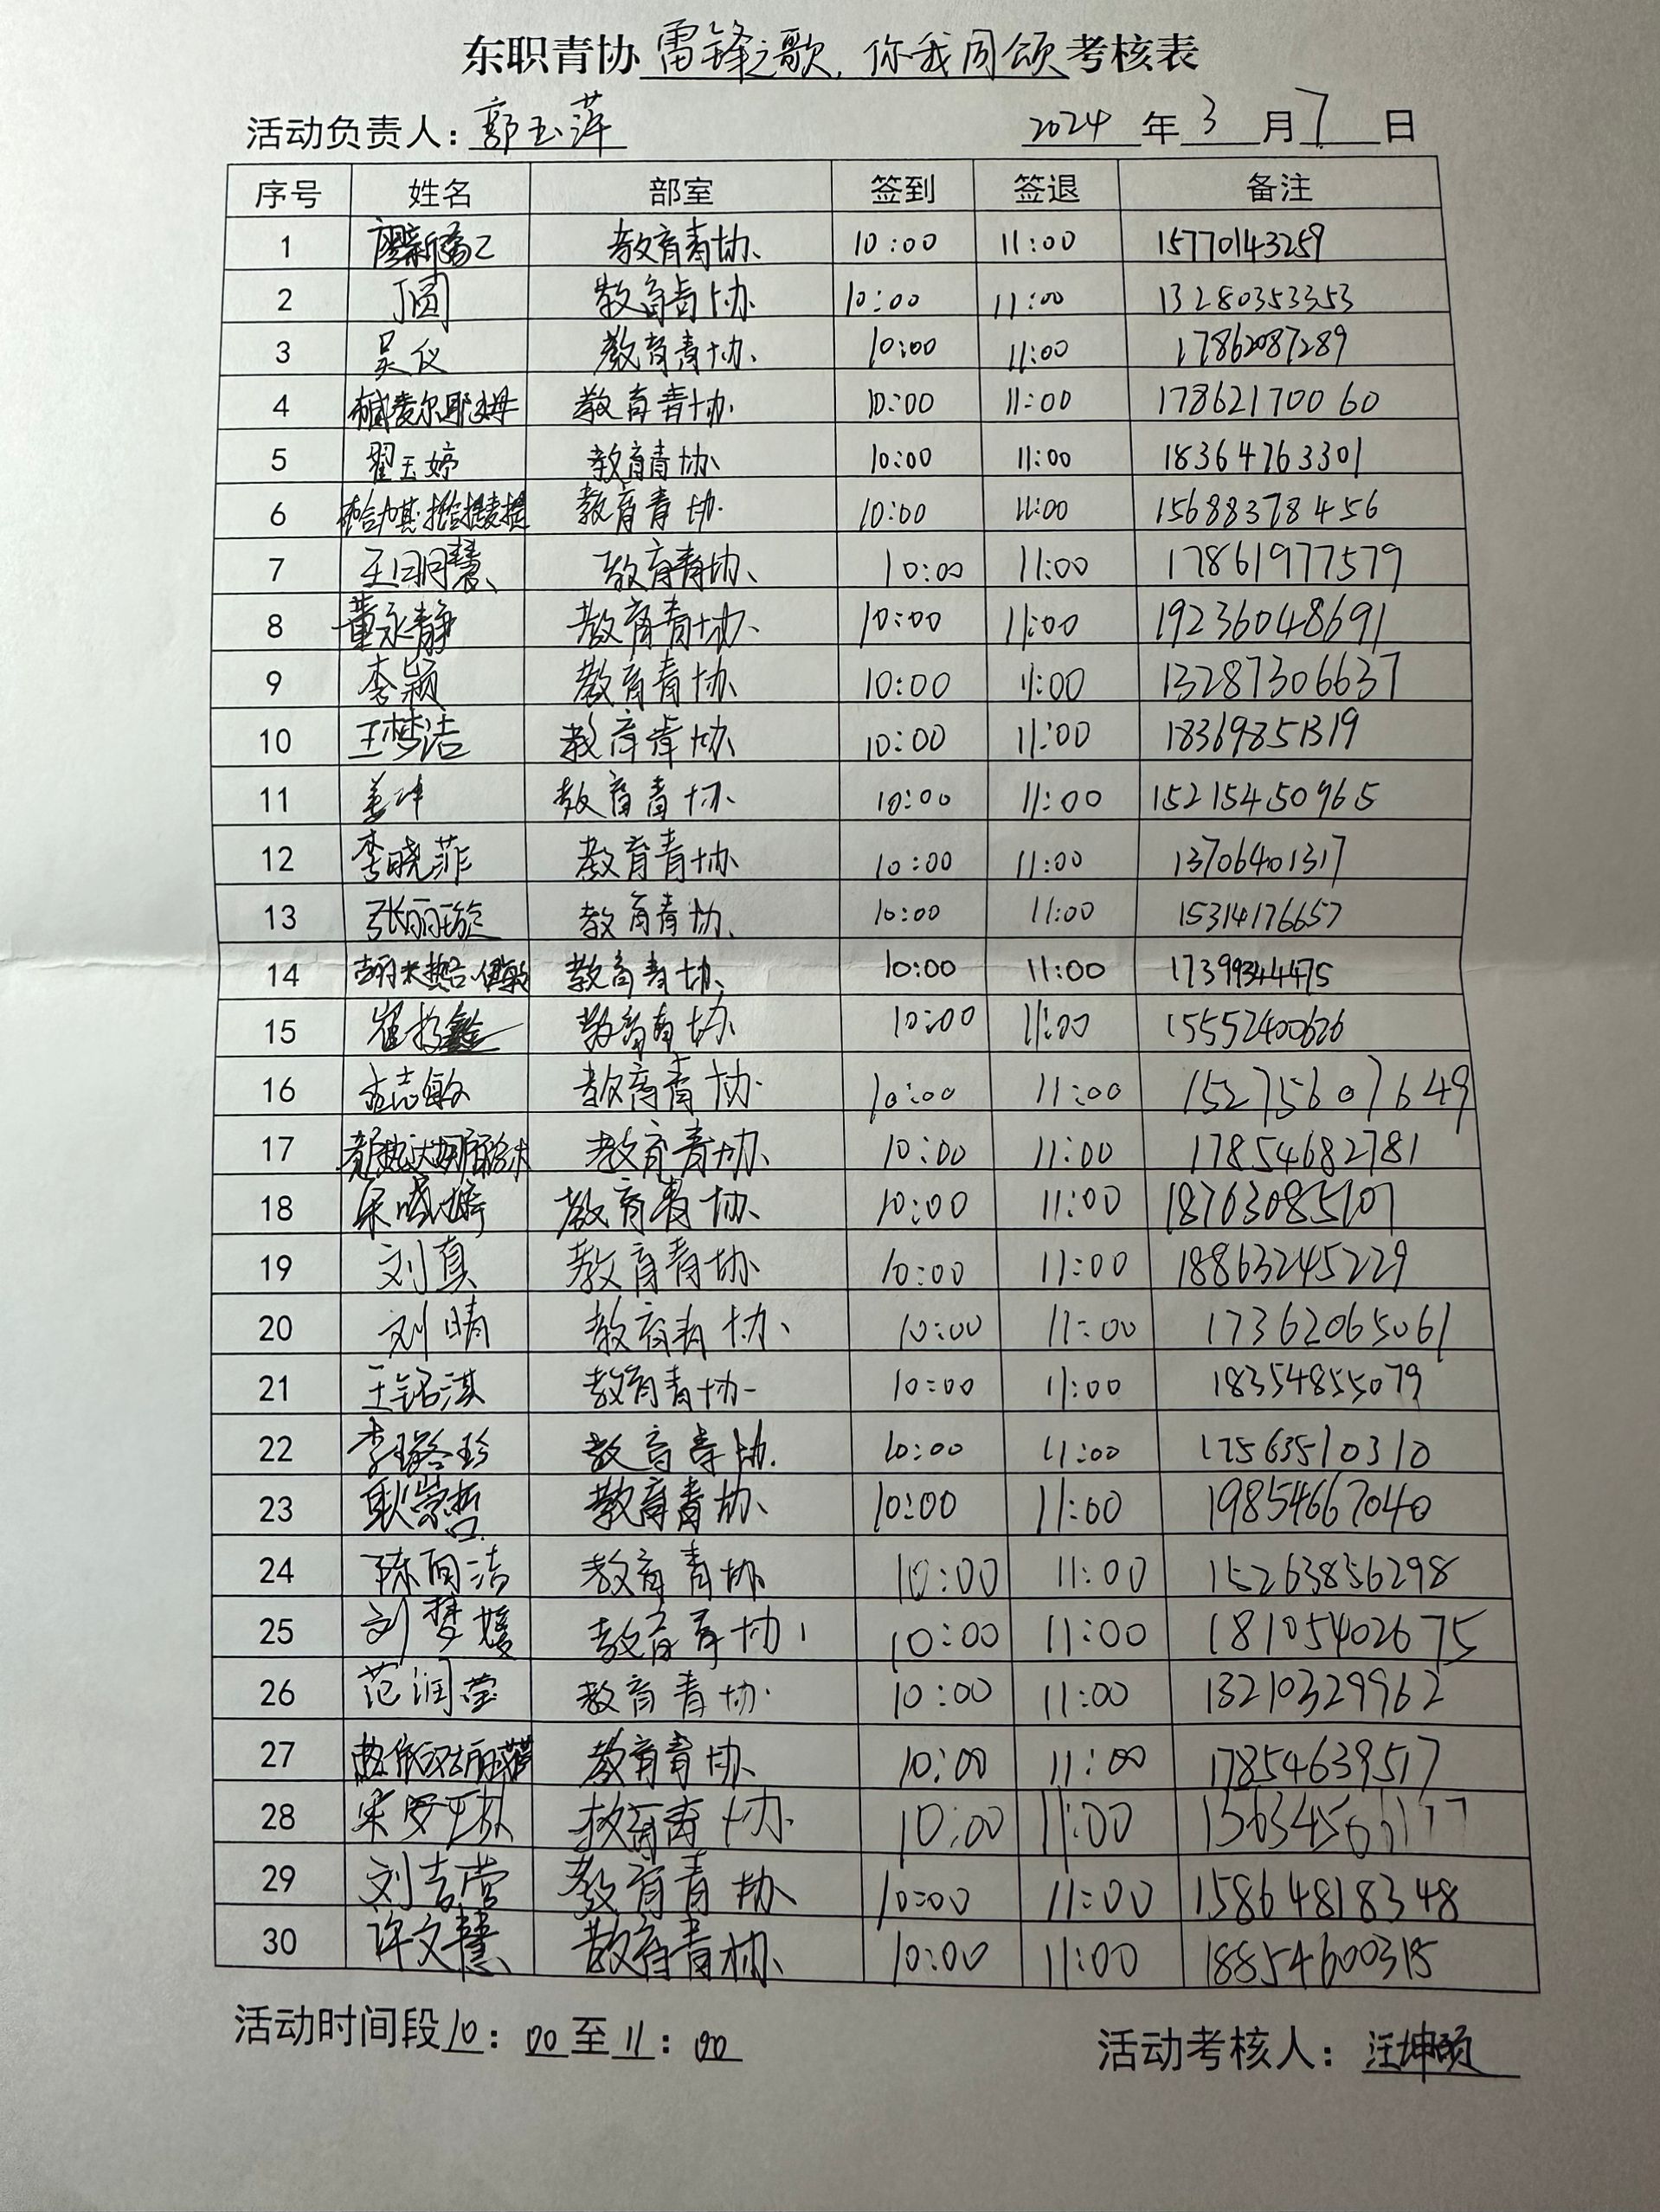 东职青协雷锋之歌,你我同颂考核表
活动负责人：郭玉萍 2024年3月7日
序号 姓名 部室 签到 签退 备注
1 教育青协 10:00 11:00 15770143259
2 丁圆 教育青协 10:00 11:00 13280353353
3 吴仪 教育青协 10:00 11:00 17862087289
4 教育青协 10:00 11:00 17862170060
5 翟玉婷 教育青协 10:00 11:00 18364763301
6 教育青协 10:00 11:00 15688378456
7 王明慧 教育青协 10:00 11:00 17861977579
8 董永静 教育青协 10:00 11:00 19236048691
9 李颖 教育青协 10:00 11:00 13287306637
10 王梦洁 教育青协 10:00 11:00 18369851319
11 姜坤 教育青协 10:00 11:00 15215450965
12 李晓菲 教育青协 10:00 11:00 13706401317
13 张丽璇 教育青协 10:00 11:00 15314176657
14 教育青协 10:00 11:00 17399344475
15 教育青协 10:00 11:00 15552400626
16 孟志敏 教育青协 10:00 11:00 15275607649
17 教育青协 10:00 11:00 17854682781
18 教育青协 10:00 11:00 18763085107
19 刘真 教育青协 10:00 11:00 18863245229
20 刘晴 教育青协 10:00 11:00 17362065061
21 王铭淇 教育青协 10:00 11:00 18354855079
22 教育青协 10:00 11:00 17563510310
23 耿崇哲 教育青协 10:00 11:00 19854667040
24 陈雨洁 教育青协 10:00 11:00 15263856298
25 刘梦媛 教育青协 10:00 11:00 18105402675
26 范润莹 教育青协 10:00 11:00 13210329962
27 教育青协 10:00 11:00 17854639517
28 教育青协 10:00 11:00
29 刘吉营 教育青协 10:00 11:00 15864818348
30 许文慧 教育青协 10:00 11:00 18854600315
活动时间段10：00至11：00 活动考核人：汪坤硕